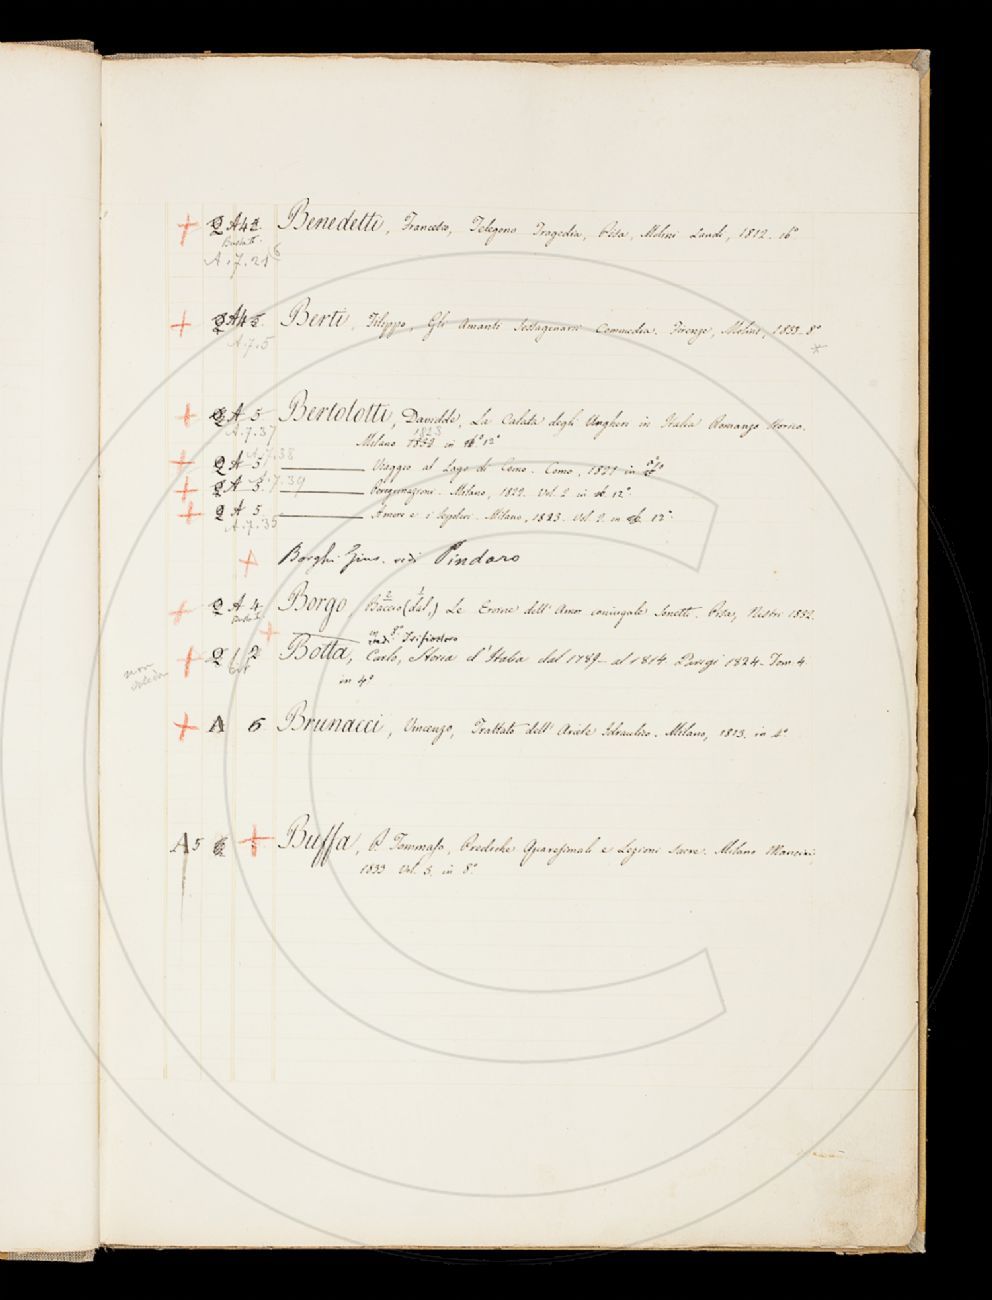 Q A 4 Benedetti, Francesco, Telegono Tragedia, Pisa, Molini Landi, 1812. 16°
A.7.21
Q A 4 Berti, Filippo, Gli Amanti Sessagenarii Commedia. Firenze, Molini, 1833. 8°
A.7.5
Q A 5 Bertolotti, Davidde, La Calata degli Ungheri in Italia Romanzo storico.
A.7.37 1823
Milano 1830 in 16° 12°
A.7.38
Q A 5 Viaggio al Lago di Como. Como, 1821 in 8°
Q A 5 A.7.39 Peregrinazioni. Milano, 1822. Vol. 2. in 12°
Q A 5 Amore e i Sepolcri. Milano, 1823. Vol. 2. in 12°
A.7.35
Borghi Gius. vedi Pindaro
Q A 4 Borgo, Baccio (dal,) Le Erome dell'Amor coniugale Sonetti. Pisa, Nistri 1832.
in 8°
Q 1 2 Botta, Carlo, Storia d'Italia dal 1789 al 1814 Parigi 1824. Tom. 4
non
in 4°
A 6 Brunacci, Vincenzo, Trattato dell'Ariete Idraulico. Milano, 1813. in 4°
A 5 6 Buffa, P. Tommaso, Prediche Quaresimali e Lezioni Sacre. Milano
1833 Vol. 5. in 8°